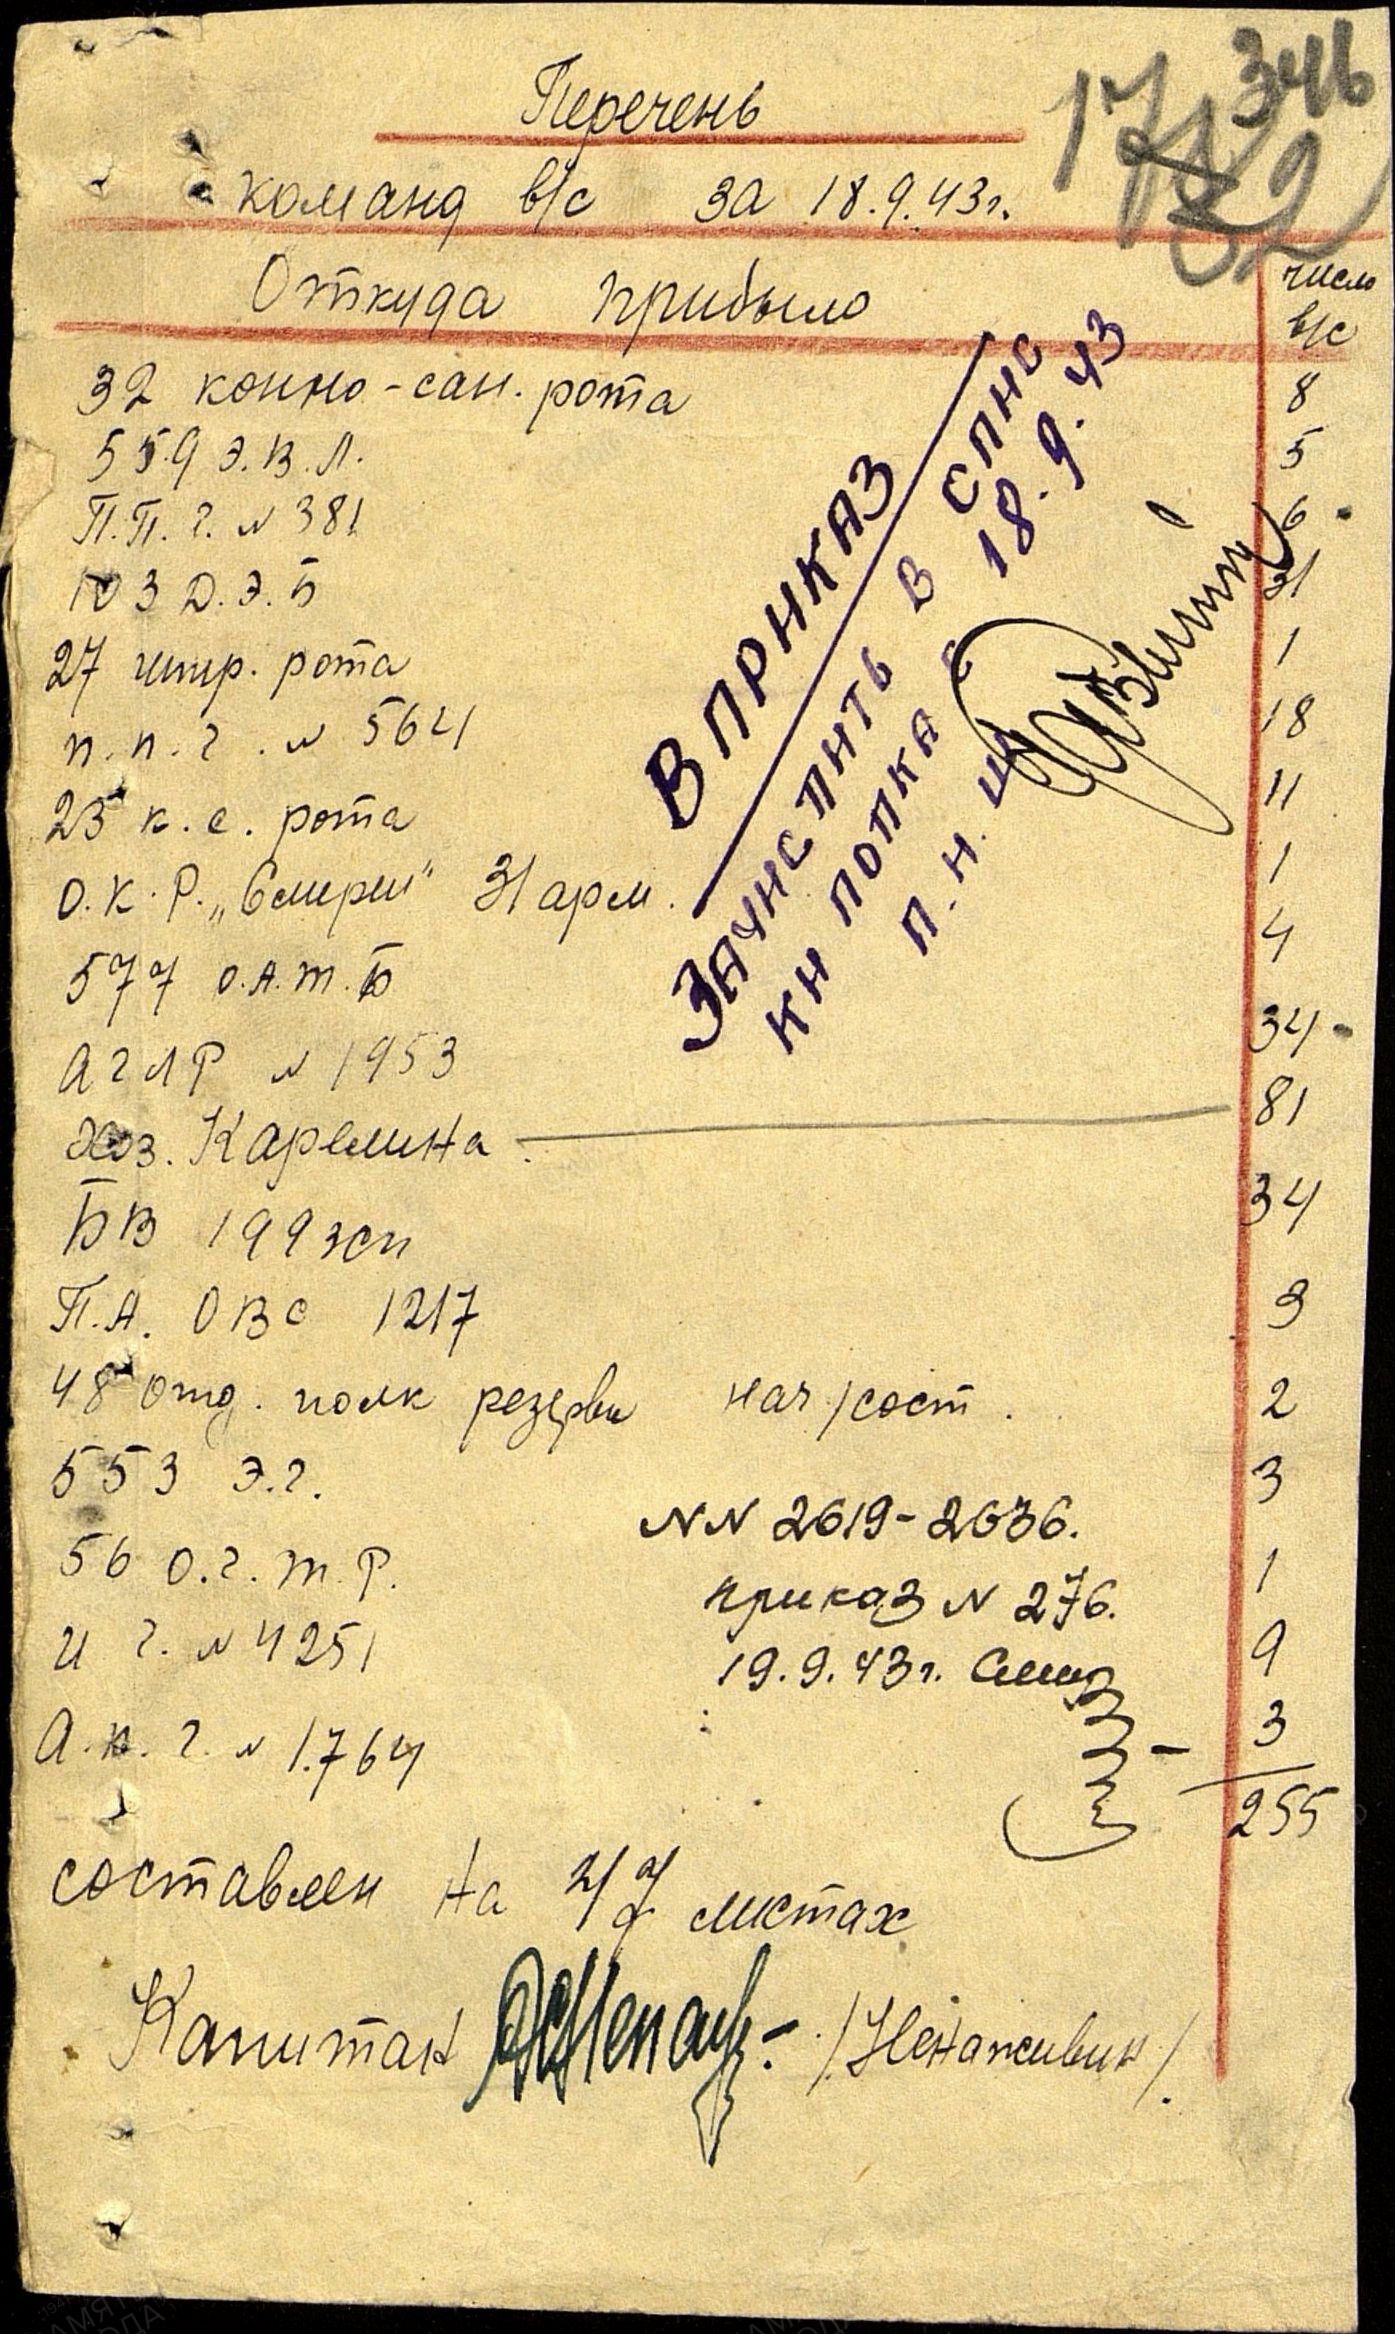 346
Перечень
команд в/с за 18.9.43г.
Откуда прибыло
число
в/с
32 конно-сан. рота 8
559 Э.В.Л. 5
П.П.г. № 381 6
103 Д.Э.Б 31
27 штр. рота 1
п.п.г. № 564 18
23 к.с. рота 11
О.К.Р. „Смерш" 31 арм. 1
577 О.А.Т.Б 4
АГЛР № 1953 34
хоз. Карелина 81
БВ 199 зсп 34
П.А. ОВС 1217 3
48 отд. полк резерва нач/сост. 2
553 Э.г. 3
56 О.г.т.Р. 1
И г. № 4251 9
А.п.г. № 1764 3
255
В приказ
Зачислить в спис
кн полка с 18.9.43
П.Н.Ш
NN 2619-2636.
приказ N 276.
19.9.43г.
составлен на листах
Капитан /Ненаживин/